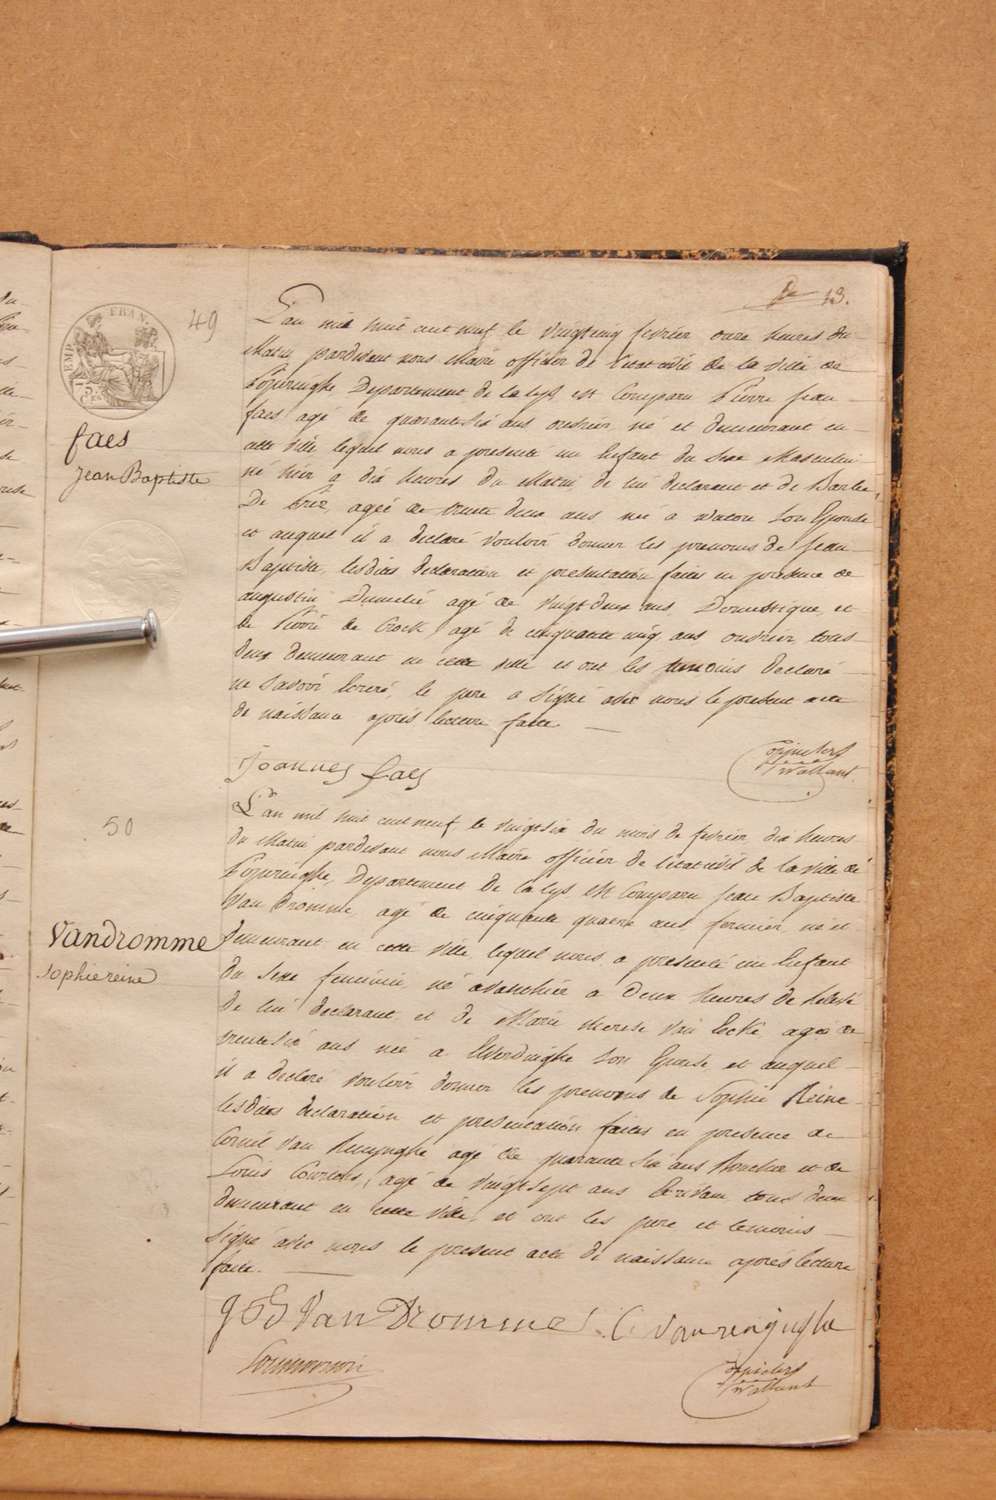 13.
EMP. FRAN.
49
faes
Jean Baptiste
L'an mil huit cent neuf le vingtcinq fevrier onze heures du
Matin pardevant nous Maire officier de l'etat civil de la ville de
Poperinghe Departement de la Lys est Comparu Pierre Jean
faes agé de quarante six ans ouvrier né et demeurant en
cette ville lequel nous a presenté un Enfant du sexe Masculin
né hier a dix heures du Matin de lui declarant et de Barbe
De Prie, agée de trente deux ans née a watou son Epouse
et auquel il a declaré vouloir donner les prenoms de Jean
Baptiste, lesdites declaration et presentation faites en presence de
augustin agé de vingt deux ans Domestique et
de Pierre de Crock agé de cinquante cinq ans ouvrier tous
deux demeurant en cette ville et ont les temoins declaré
ne savoir Ecrire, le pere a signé avec nous le present acte
de naissance après lecture faite
Joannes faes
50
Vandromme
Sophie reine
L'an mil huit cent neuf le vingtsix du mois de fevrier dix heures
du Matin pardevant nous Maire officier de l'etat civil de la ville de
Poperinghe, Departement de la Lys est Comparu Jean Baptiste
Van Dromme agé de cinquante quatre ans fermier né et
demeurant en cette ville lequel nous a presenté un Enfant
du sexe feminin né avanthier a Deux heures de
de lui declarant et de Marie therese Van Eecke agée de
trente six ans née a Elverdinghe son Epouse et auquel
il a declaré vouloir donner les prenoms de Sophie Reine
lesdites declaration et presentation faites en presence de
Cornil Van Renynghe agé de quarante six ans et de
Louis agé de vingt sept ans Ecrivain tous deux
demeurant en cette ville, et ont les pere et temoins
signé avec nous le present acte de naissance après lecture
faite.
J B Van Dromme C Van renijnghe